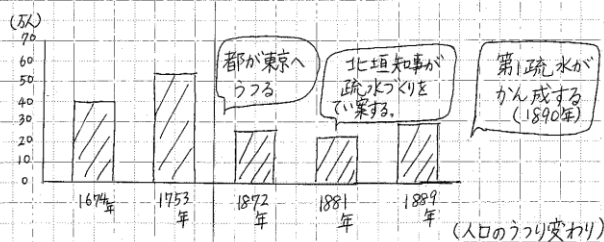 (万人)
70
60
50
40
30
20
10
0
1674年
1753
年
1872
年
1881
年
1889
年
都が東京へ
うつる
北垣知事が
疏水づくりを
てい案する。
第1疏水が
かん成する
(1890年)
(人口のうつり変わり)